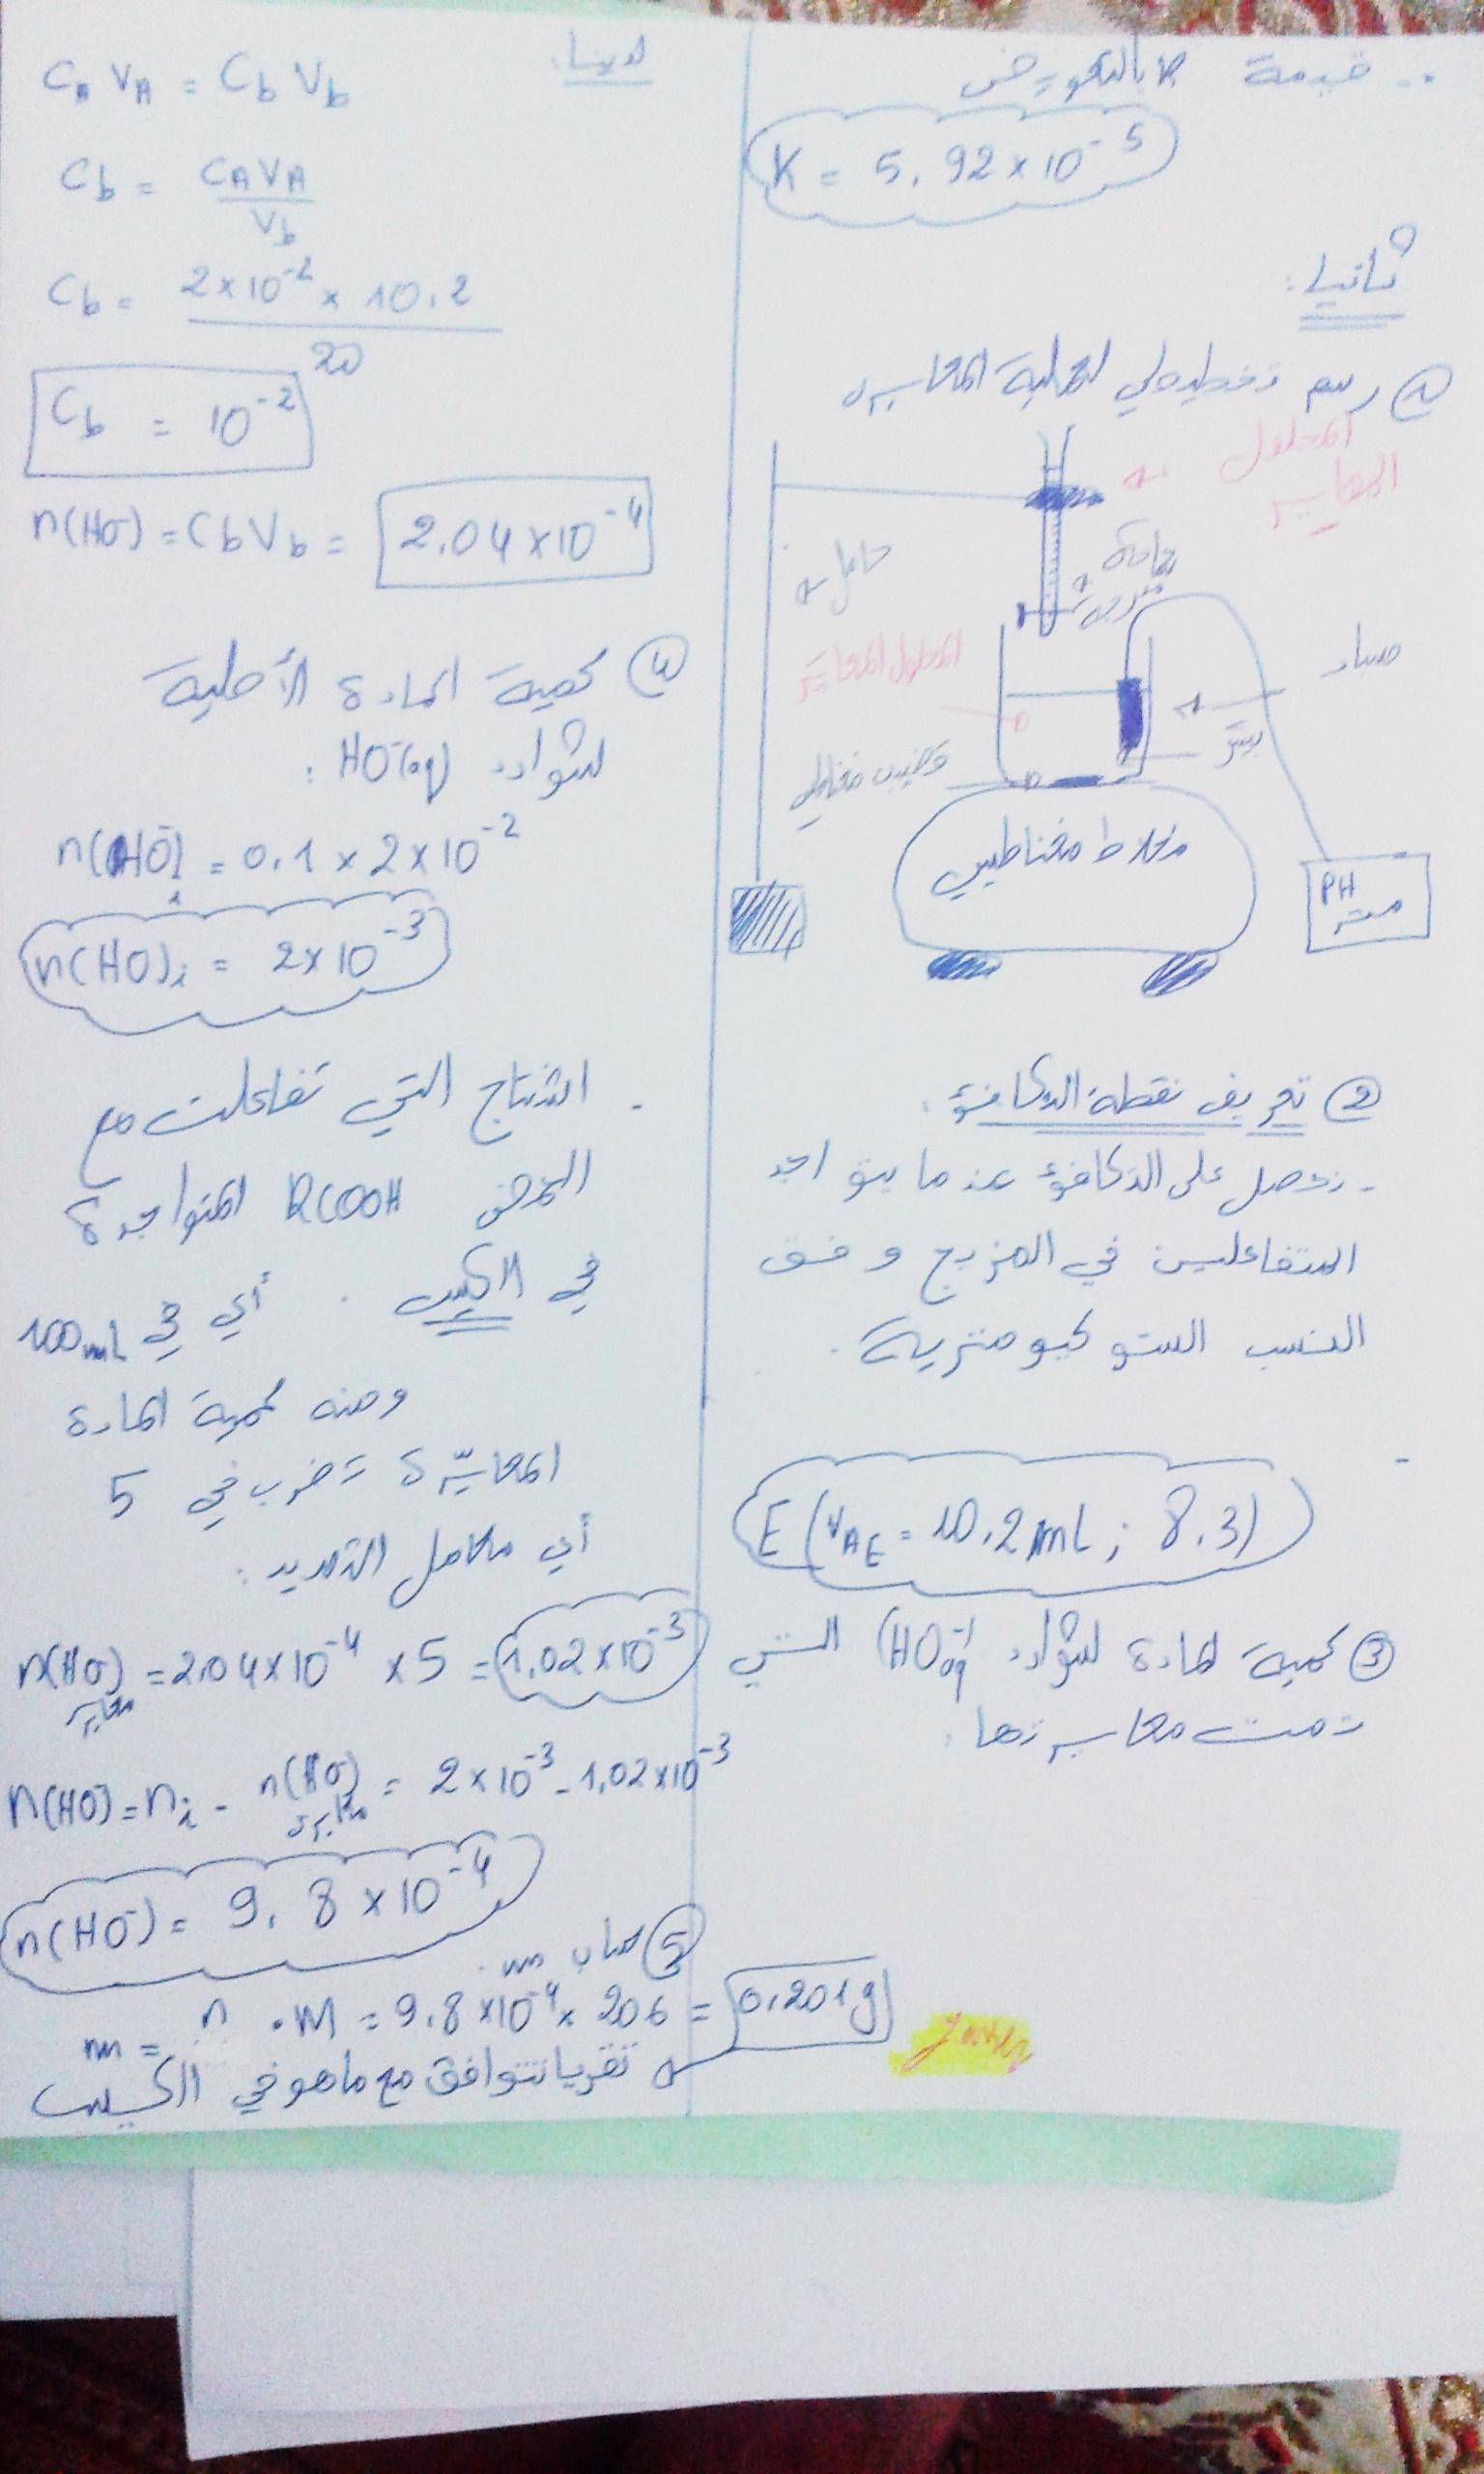 .. قيمة K بالتعويض
K = 5.92 × 10⁻⁵
ثانيا:
① رسم تخطيطي لعملية المعايرة
المحلول
المعاير
حامل
سحاحة
مدرجة
المحلول المعاير
مسبار
بيشر
قضيب مغناطيسي
مخلاط مغناطيسي
PH
متر
② تعريف نقطة التكافؤ.
- نحصل على التكافؤ عندما يتواجد
المتفاعلين في المزيج وفق
النسب الستوكيومترية.
E (V_AE = 10.2 mL ; 8.3)
③ كمية المادة لشوارد (HO⁻aq) التي
تمت معايرتها.
لدينا:
C_A V_A = C_b V_b
C_b = C_A V_A / V_b
C_b = 2×10⁻² × 10.2 / 20
C_b = 10⁻²
n(HO⁻) = C_b V_b = 2.04 × 10⁻⁴
④ كمية المادة الأصلية
لشوارد HO⁻(aq) :
n(HO⁻)i = 0.1 × 2 × 10⁻²
n(HO)i = 2 × 10⁻³
- استنتاج التي تفاعلت مع
الحمض RCOOH المتواجدة
في الكيس . أي في 100mL
ومنه كمية المادة
المعايرة تضرب في 5
أي معامل التمديد:
n(HO⁻) معايرة = 2.04 × 10⁻⁴ × 5 = 1.02 × 10⁻³
n(HO⁻) = ni - n(HO⁻) معايرة = 2 × 10⁻³ - 1.02 × 10⁻³
n(HO⁻) = 9.8 × 10⁻⁴
⑤ حساب m.
m = n . M = 9.8 × 10⁻⁴ × 206 = 0.201g
تقريبا تتوافق مع ما هو في الكيس